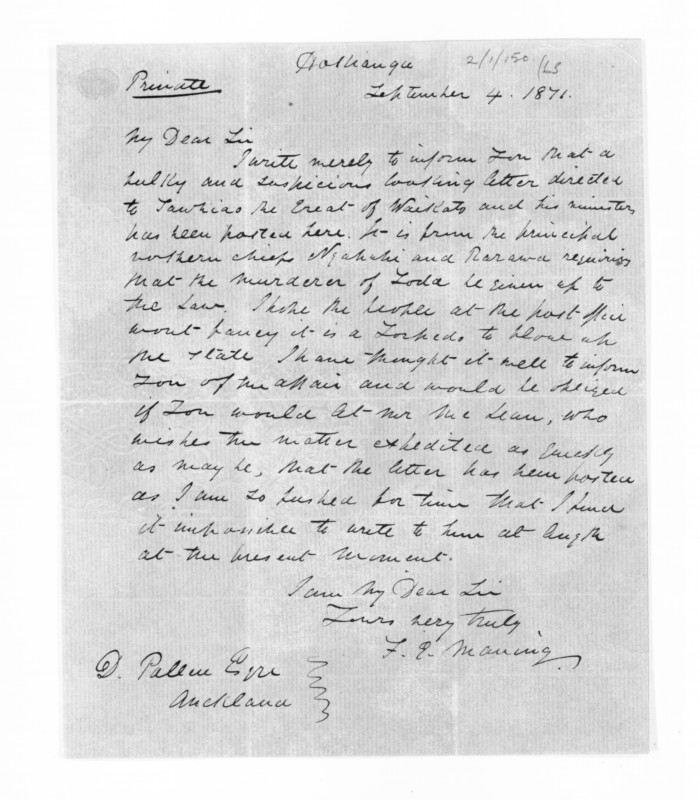 Hokianga 2/1/150/LS
Private
September 4. 1871.
My Dear Sir
I write merely to inform You that a
bulky and suspicious looking letter directed
to Tawhiao the Great of Waikato and his ministers
has been posted here. It is from the principal
northern chiefs Ngapuhi and Rarawa requiring
that the murderer of Todd be given up to
the Law. I hope the people at the post office
wont fancy it is a Torpedo to blow up
the State I have thought it well to inform
You of the affair and would be obliged
if You would let Mr McLean, who
wishes the matter expedited as quickly
as may be, that the letter has been posted
as I am so pushed for time that I find
it impossible to write to him at length
at the present moment.
I am My Dear Sir
Yours very truly
F. E. Maning
D. Pollen Esqre
Auckland